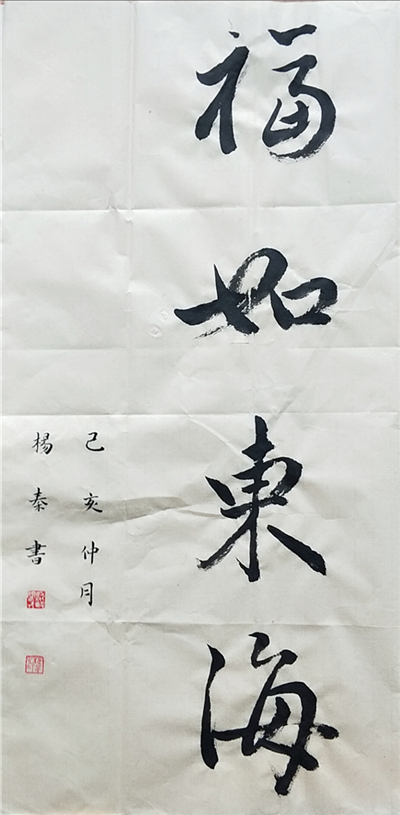 福如東海
己亥仲月
楊秦書